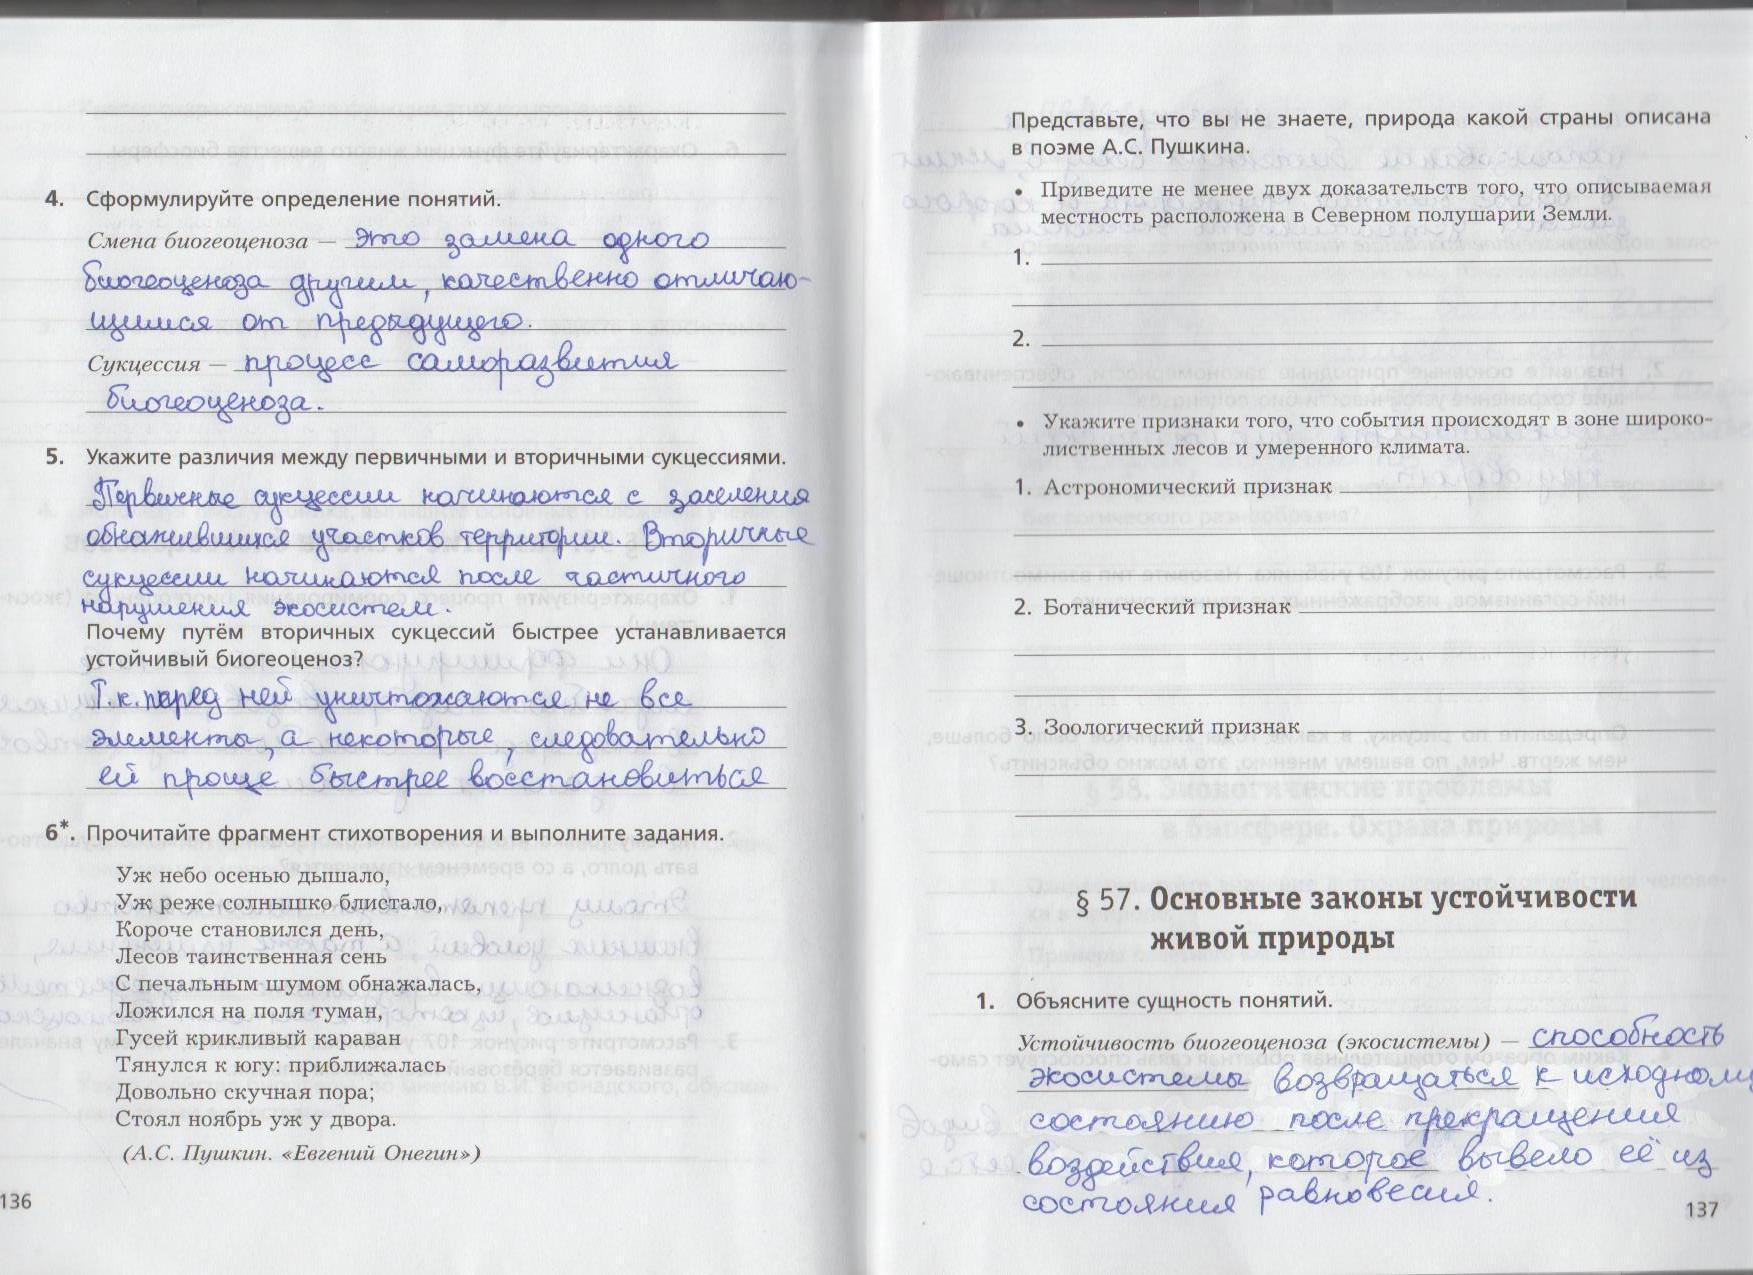 4. Сформулируйте определение понятий.
Смена биогеоценоза — это замена одного
биогеоценоза другим, качественно отличаю-
щимся от предыдущего.
Сукцессия — процесс саморазвития
биогеоценоза.
5. Укажите различия между первичными и вторичными сукцессиями.
Первичные сукцессии начинаются с заселения
обнажившихся участков территории. Вторичные
сукцессии начинаются после частичного
нарушения экосистем.
Почему путём вторичных сукцессий быстрее устанавливается
устойчивый биогеоценоз?
Т.к. перед ней уничтожаются не все
элементы, а некоторые, следовательно
ей проще быстрее восстановиться
6*. Прочитайте фрагмент стихотворения и выполните задания.
Уж небо осенью дышало,
Уж реже солнышко блистало,
Короче становился день,
Лесов таинственная сень
С печальным шумом обнажалась,
Ложился на поля туман,
Гусей крикливый караван
Тянулся к югу: приближалась
Довольно скучная пора;
Стоял ноябрь уж у двора.
(А.С. Пушкин. «Евгений Онегин»)
136
Представьте, что вы не знаете, природа какой страны описана
в поэме А.С. Пушкина.
• Приведите не менее двух доказательств того, что описываемая
местность расположена в Северном полушарии Земли.
1.
2.
• Укажите признаки того, что события происходят в зоне широко-
лиственных лесов и умеренного климата.
1. Астрономический признак
2. Ботанический признак
3. Зоологический признак
§ 57. Основные законы устойчивости
живой природы
1. Объясните сущность понятий.
Устойчивость биогеоценоза (экосистемы) — способность
экосистемы возвращаться к исходному
состоянию после прекращения
воздействия, которое вывело её из
состояния равновесия.
137